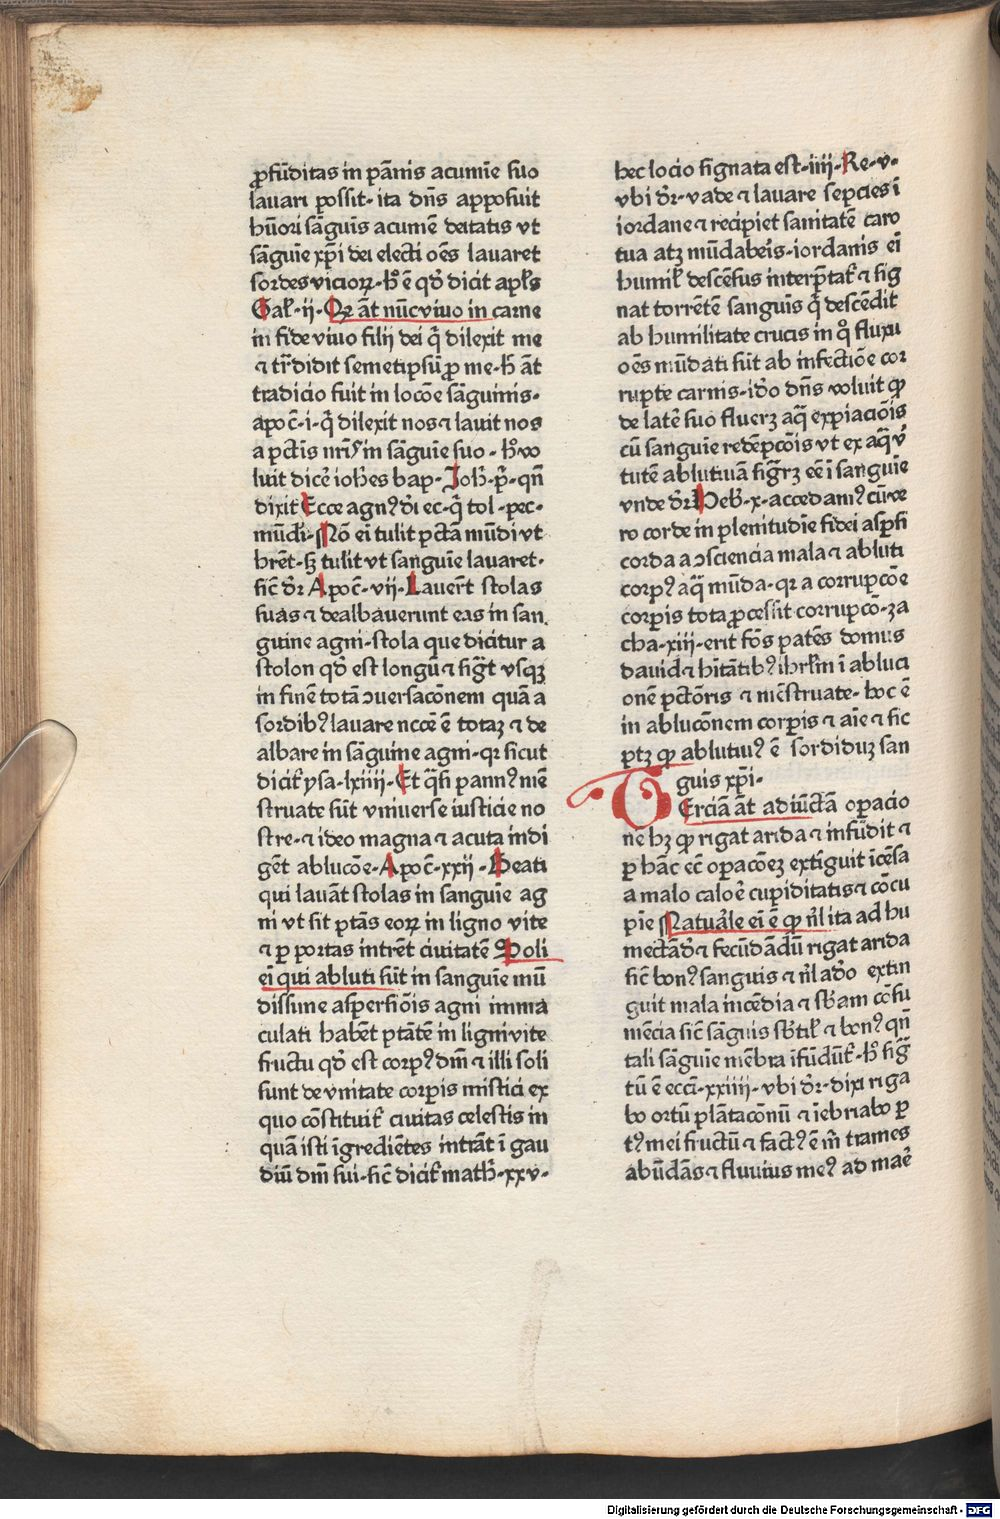 ꝓfūditas in pānis acumīe ſuo
lavari poſſit·ita dn̄s appoſuit
hūori sāguīs acumē deitatis vt
sāguīe xp̄i dei electi oēs lavaret
sordes viciorꝝ·h̊ ē qd̄ dicit apl̄s
Gal̄·ii·Qꝛ āt nūc vivo in carne
in fide vivo filij dei q̄ dilexit me
⁊ tr̄didit semetipsū ꝓ me·h̄ āt
tradicio fuit in locōe sāguinis·
apoc̄·i·q̄ dilexit nos ⁊ lavit nos
a pctīs nr̄is in sāguīe suo·h̊ vo
luit dicē ioh̄es bap·Joh̄·p̄·qn̄
dixit Ecce agnꝰ di ec·q̄ tol·pec·
mūdi·Nō ei tulit pctā mūdi vt
hrēt·sꝫ tulit vt sanguīe lavaret·
ſic dr̄ Apoc̄·vij·Lauerūt stolas
ſuas ⁊ dealbauerunt eas in san
guine agni·stola que dicitur a
stolon qd̄ est longū ⁊ ſigt̄ vsqꝫ
in finē totā ↄversacōnem quā a
sordibꝰ lavare nccē ē totaꝫ ⁊ de
albare in sāguine agni·qꝛ sicut
dicit̄ ysa·lxiiii·Et q̄ſi pannꝰ mē
struate ſūt vniuerse iusticie no
stre·⁊ ideo magna ⁊ acuta indi
gēt ablucōe·Apoc̄·xxij·Beati
qui lavāt stolas in sanguīe ag
ni vt sit ptās eorꝝ in ligno vite
⁊ ꝑ portas intrēt civitatē Soli
ei qui abluti ſūt in sanguīe mū
diſſime aſperſiōis agni imma
culati habēt ptātē in ligni vite
fructu qd̄ est corpꝰ dn̄i ⁊ illi soli
sunt de vnitate corpis mistici ex
quo cōstituit̄ civitas celestis in
quā isti īgrediētes intrāt ī gau
diū dn̄i sui·ſic dicit̄ math̄·xxv·
hec locio ſignata est·iiij·Re·v·
vbi dr̄·vade ⁊ lavare sepcies ī
iordane ⁊ recipiet sanitatē caro
tua atꝫ mūdaberis·iordanis ei
humil̄ deſcēſus interp̄tat̄ ⁊ ſig
nat torrētē sanguīs q̄ deſcēdit
ab humilitate crucis in q̊ fluxu
oēs mūdati ſūt ab infectiōe cor
rupte carnis·ido dn̄s voluit ꝙ
de latē suo flueꝛꝫ aq̄ expiaciōis
cū sanguīe redēpcōis vt ex aq̄ v̄
tutē ablutivā ſigr̄ꝫ eē ī sanguīe
vnde dr̄ Heb̄·x·accedamꝰ cū ve
ro corde in plenitudīe fidei aſperſi
corda a ↄsciencia mala ⁊ abluti
corpꝰ aq̄ mūda·qꝛ a corrupcōe
corpis tota ꝓceſſit corrupcō·za
cha·xiii·erit fōs patēs domus
david ⁊ hītātibꝰ ihrl̄m ī abluci
onē pctōris ⁊ mēstruate·hoc ē
in ablucōnem corpis ⁊ aīe ⁊ ſic
ptꝫ ꝙ ablutiuꝰ ē sordiduꝫ san
guis xp̄i·
Terciā āt adiūctā operacio
nē hꝫ ꝙ rigat arida ⁊ infūdit ⁊
ꝑ hāc ec̄ opacōeꝫ extīguit īcēsa
a malo calōe cupiditatis ⁊ cōcu
pīe Natuāle ei ē ꝙ nl̄ ita ad hu
mectādū ⁊ fecūdādū rigat arida
ſic bonꝰ sanguis ⁊ nl̄ ado extin
guit mala incēdia ⁊ sb̄am cōſu
mēcia ſic sāguis sbtīl̄ ⁊ bonꝰ qn̄
tali sāguīe mēbra īfūdūt̄·h̊ ſig
tū ē ecci·xxiiii·vbi dr̄·dixi riga
bo ortū plātacōnū ⁊ īebriabo p
tꝰ mei fructū ⁊ factꝰ ē m̄ trames
abūdās ⁊ fluvius meꝰ ad maē
Digitalisierung gefördert durch die Deutsche Forschungsgemeinschaft - DFG